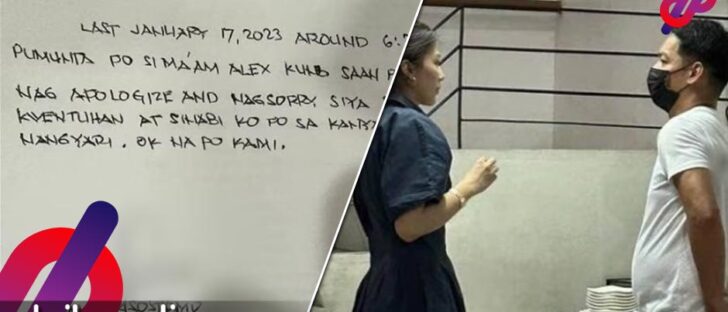 LAST JANUARY 17, 2023 AROUND
PUMUNTA PO SI MA'AM ALEX KUNG SAAN
NAG APOLOGIZE AND NAGSORRY SIYA
KWENTUHAN AT SINABI KO PO SA
NANGYARI. OK NA PO KAMI.